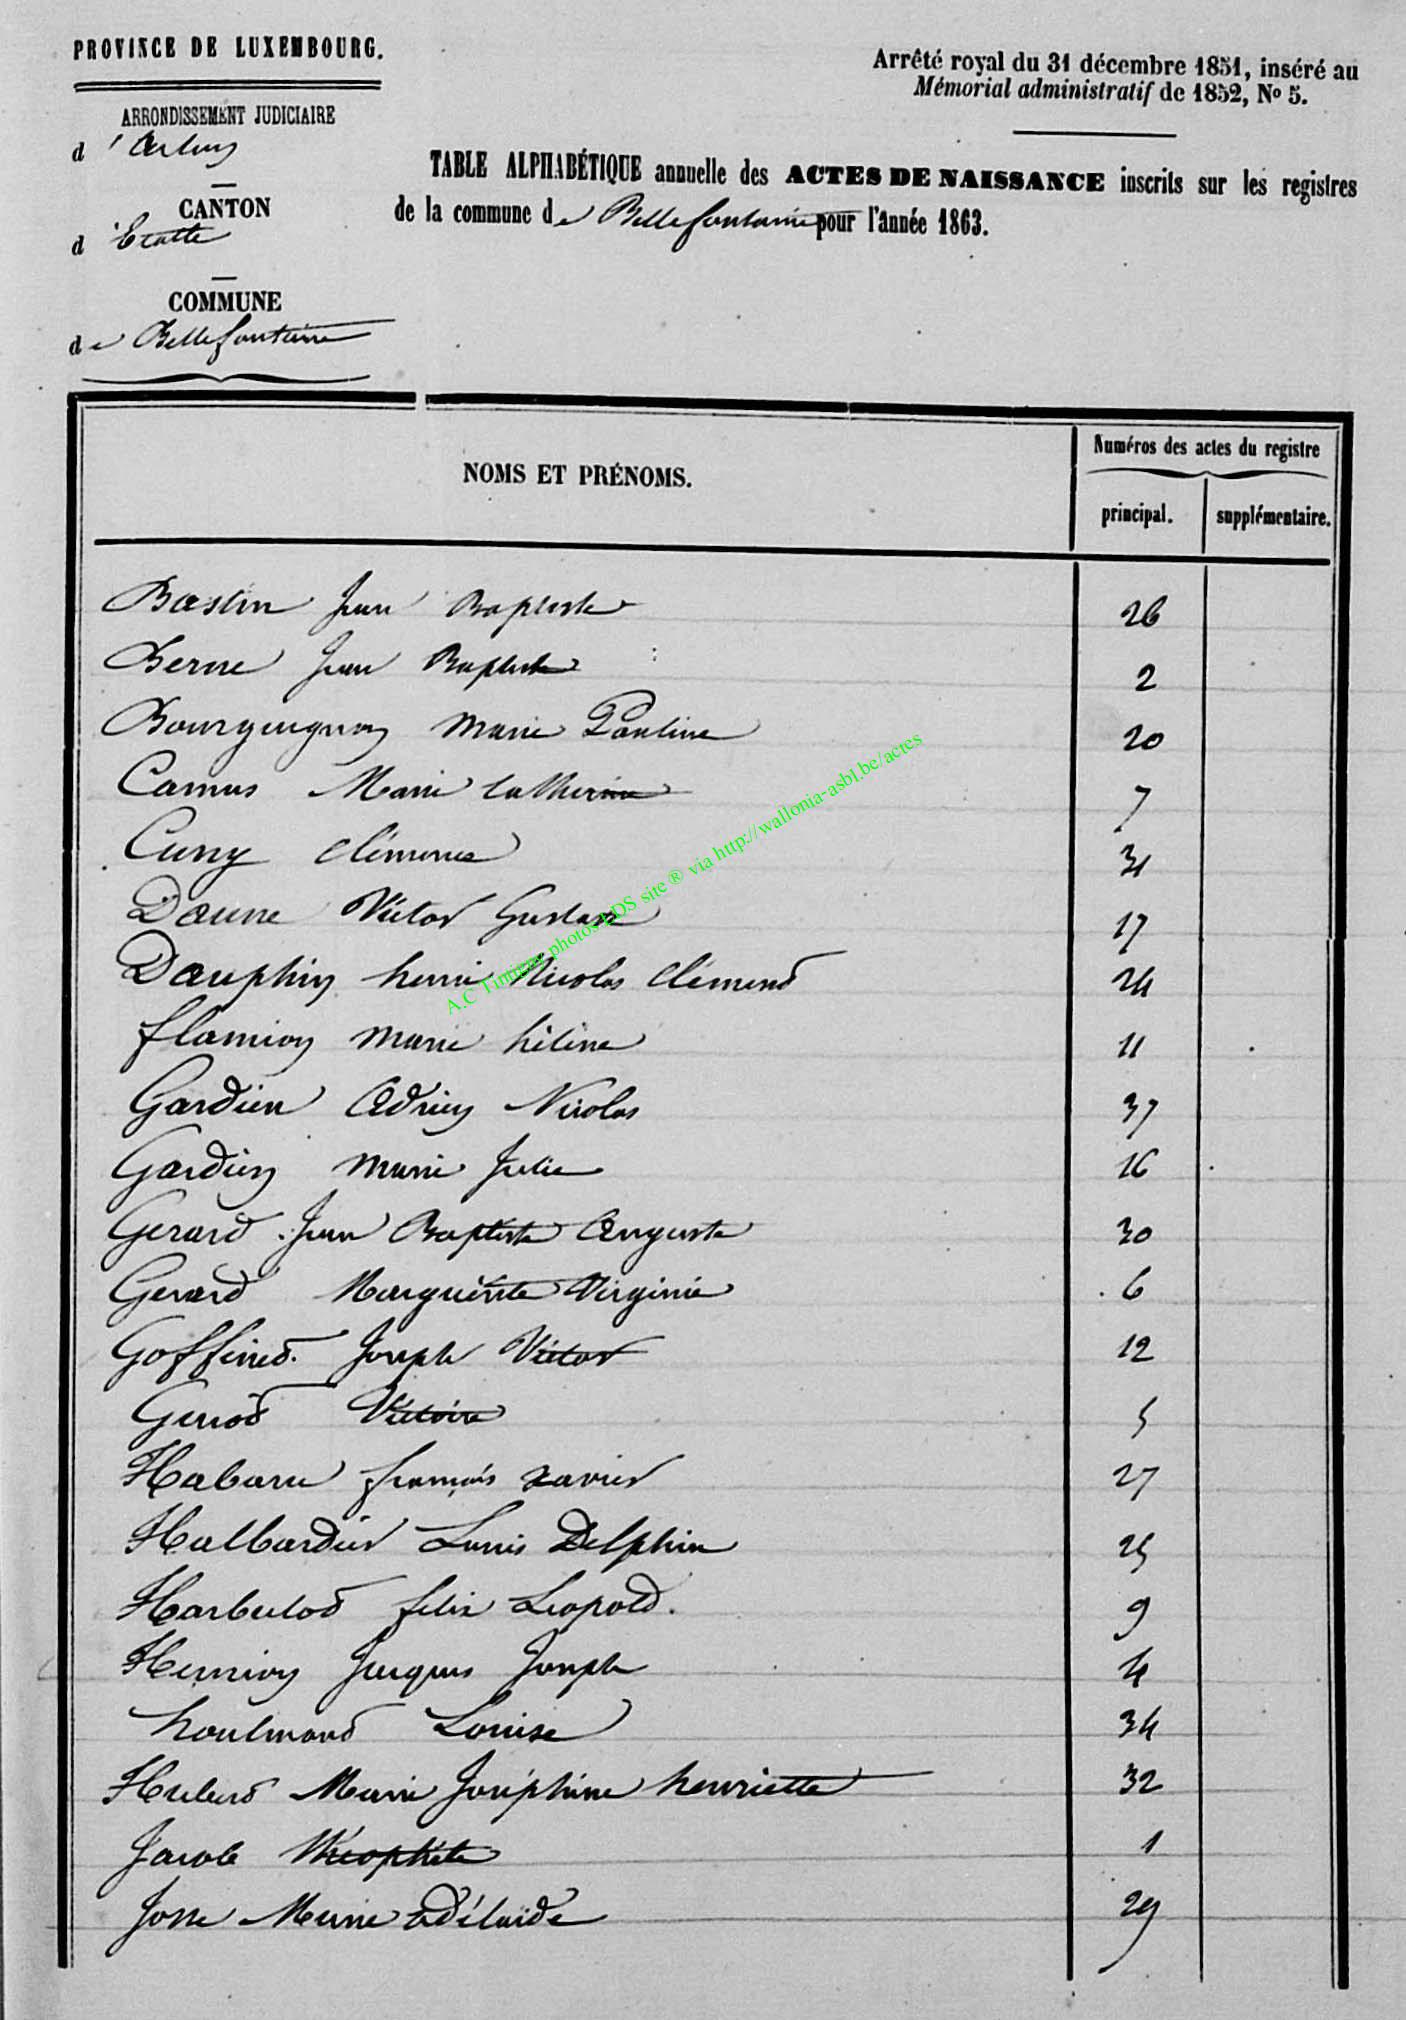 PROVINCE DE LUXEMBOURG.
Arrêté royal du 31 décembre 1851, inséré au
Mémorial administratif de 1852, No 5.
ARRONDISSEMENT JUDICIAIRE
d'Arlon
CANTON
d'Etalle
COMMUNE
de Bellefontaine
TABLE ALPHABÉTIQUE annuelle des ACTES DE NAISSANCE inscrits sur les registres
de la commune de Bellefontaine pour l'année 1863.
NOMS ET PRÉNOMS.
Numéros des actes du registre
principal. supplémentaire.
Bastin Jean Baptiste 26
Berne Jean Baptiste 2
Bourguignon Marie Pauline 20
Camus Marie Catherine 7
Cuny Clémence 31
Daune Victor Gustave 17
Dauphin henri Nicolas Clémend 24
flamion Marie héline 11
Gardien Adrien Nicolas 37
Gardien Marie Julie 16
Gerard Jean Baptiste Auguste 30
Gerard Marguerite Virginie 6
Goffined Joseph Victor 12
Victoire 5
Habaru françois Xavier 27
Halbardier Louis Delphin 25
Harbulod félix Léopold. 9
Henrion Jacques Joseph 4
houlmond Louise 34
Huberd Marie Joséphine henriette 32
Jacob Théophile 1
Josse Marie Adélaïde 29
A.C Tintigny photos LDS site ® via http://wallonia-asbl.be/actes